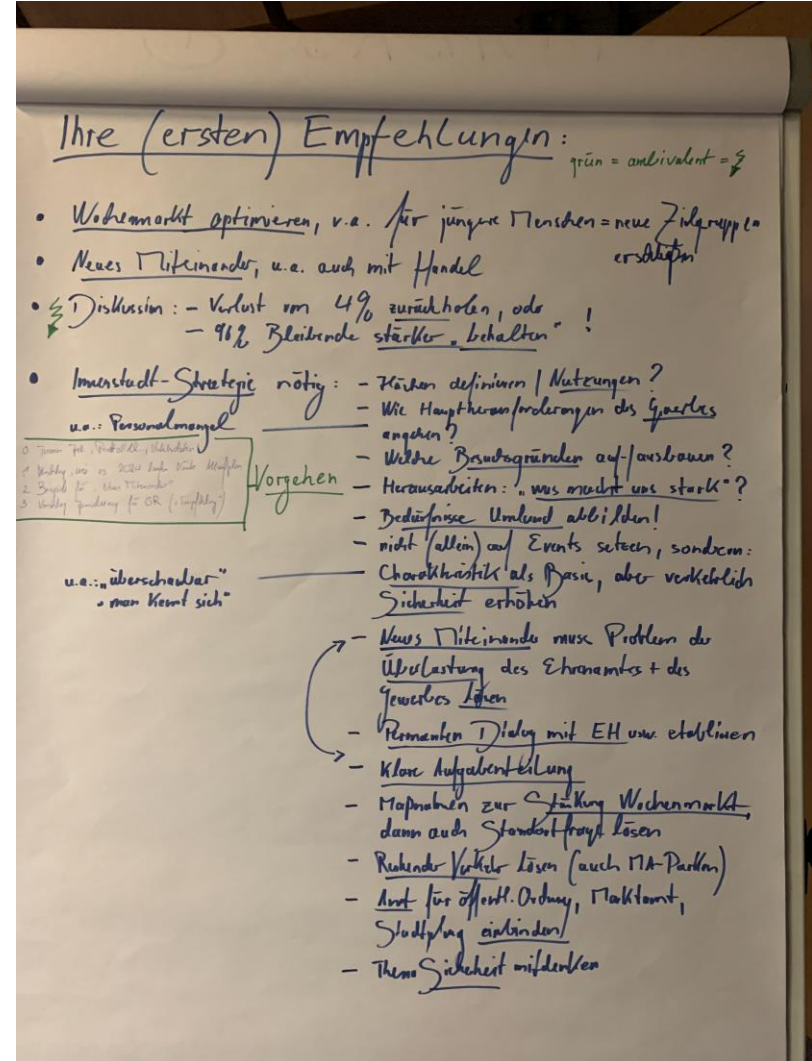 Ihre (ersten) Empfehlungen:
grün = ambivalent =
• Wochenmarkt optimieren, v.a. für jüngere Menschen = neue Zielgruppen
erschließen
• Neues Miteinander, u.a. auch mit Handel
• Diskussion: - Verlust von 4% zurückholen, oder
- 96% Bleibende stärker „behalten" !
• Innenstadt-Strategie nötig: - Flächen definieren / Nutzungen?
u.a.: Personalmangel - Wie Hauptherausforderungen des Gewerbes
angehen?
- Welche Besuchsgründen auf-/ausbauen?
Vorgehen - Herausarbeiten: „was macht uns stark"?
- Bedürfnisse Umland abbilden!
- nicht (allein) auf Events setzen, sondern:
u.a.: „überschaubar" - Charakteristik als Basis, aber verkehrlich
„man kennt sich" Sicherheit erhöhen
- Neues Miteinander muss Problem der
Überlastung des Ehrenamtes + des
Gewerbes lösen
- Permanten Dialog mit EH usw. etablieren
- Klare Aufgabenteilung
- Maßnahmen zur Stärkung Wochenmarkt,
dann auch Standortfrage lösen
- Ruhender Verkehr lösen (auch MA-Parken)
- Amt für öffentl. Ordnung, Marktamt,
Stadtplng einbinden!
- Thema Sicherheit mitdenken